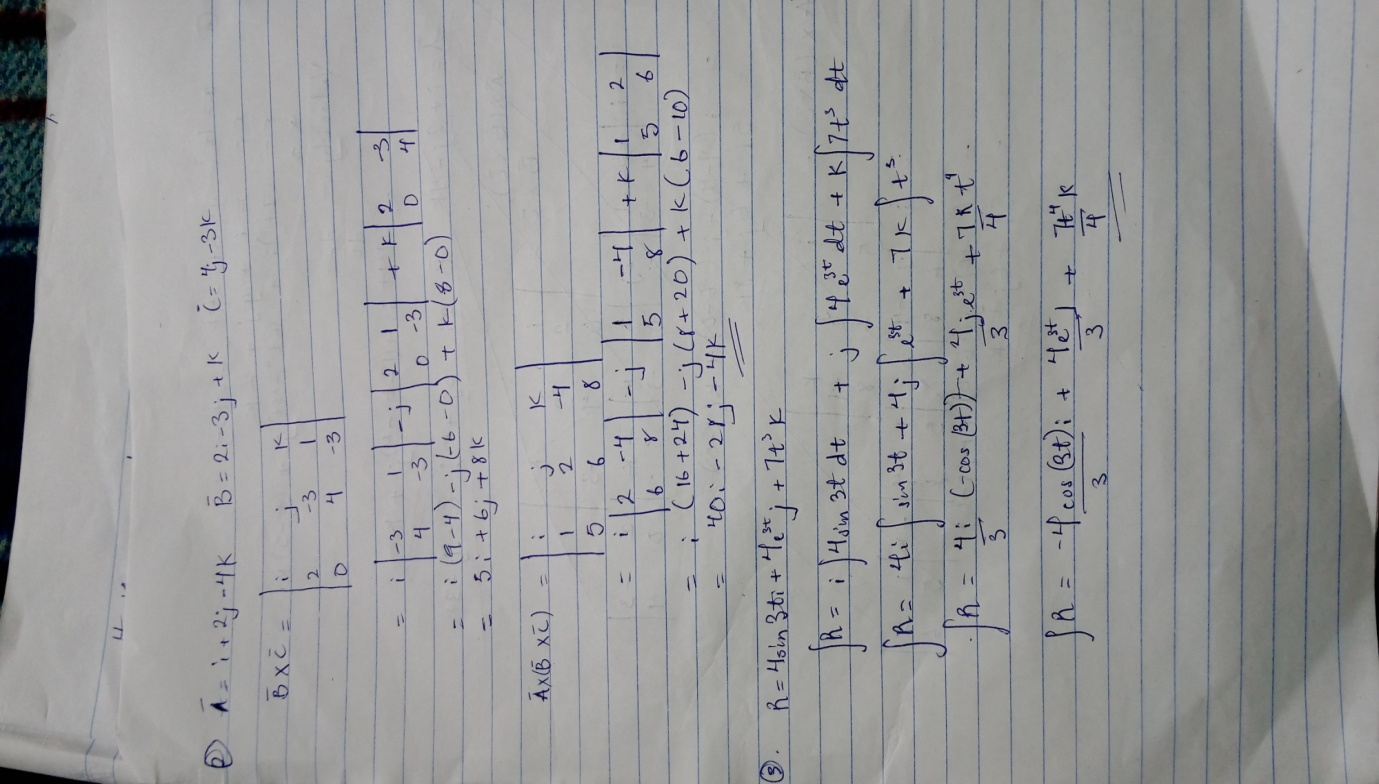 ② Ā = i + 2j - 4k B̄ = 2i - 3j + k C̄ = 4j - 3k
B̄ x C̄ = | i j k |
| 2 -3 1 |
| 0 4 -3 |
= i | -3 1 | - j | 2 1 | + k | 2 -3 |
| 4 -3 | | 0 -3 | | 0 4 |
= i (9-4) - j (-6-0) + k (8-0)
= 5i + 6j + 8k
Ā x (B̄ x C̄) = | i j k |
| 1 2 -4 |
| 5 6 8 |
= i | 2 -4 | - j | 1 -4 | + k | 1 2 |
| 6 8 | | 5 8 | | 5 6 |
= i (16+24) - j (8+20) + k (6-10)
= 40i - 28j - 4k
③. R = 4sin 3ti + 4e^3t j + 7t³k
∫R = i ∫4sin 3t dt + j ∫4e^3t dt + k ∫7t³ dt
∫R = 4i ∫sin 3t + 4j ∫e^3t + 7k ∫t³.
∫R = 4/3 i (-cos (3t)) + 4/3 j e^3t + 7k t⁴/4
∫R = -4cos (3t)/3 i + 4e^3t/3 j + 7t⁴/4 k